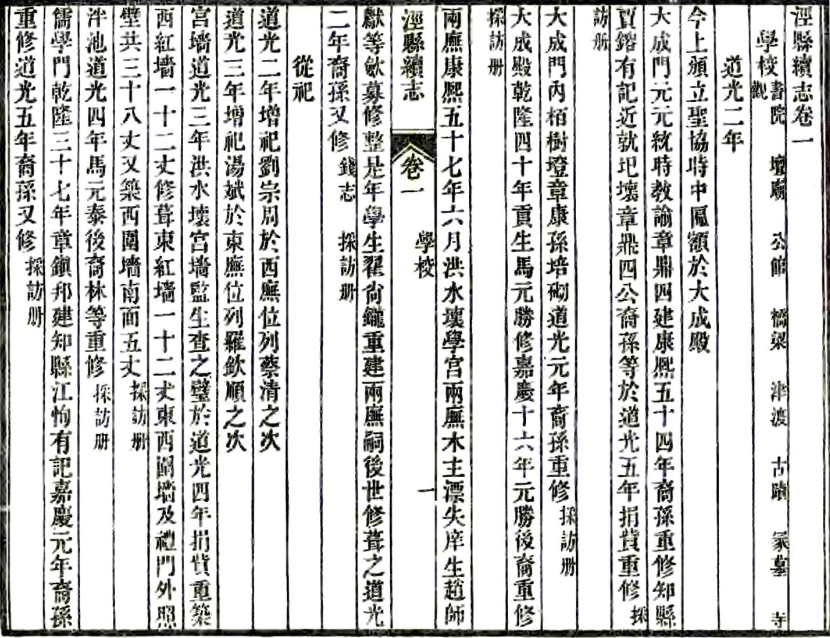 涇縣續志卷一
學校 書院 壇廟 公館 橋梁 津渡 古蹟 冢墓 寺觀
道光二年
今上頒立聖協時中匾額於大成殿
大成門元元統時教諭章鼎四建康熙五十四年裔孫重修知縣
賈鎔有記近就圯壞章鼎四公裔孫等於道光五年捐貲重修採
訪册
大成門內栢樹墱章康孫培砌道光元年裔孫重修採訪册
大成殿乾隆四十年貢生馬元勝修嘉慶十六年元勝後裔重修
採訪册
兩廡康熙五十七年六月洪水壞學宮兩廡木主漂失庠生趙師
涇縣續志 卷一 學校 一
獻等斂募修整是年學生翟尙鑨重建兩廡嗣後世修葺之道光
二年裔孫又修 錢志 採訪册
從祀
道光二年增祀劉宗周於西廡位列蔡清之次
道光三年增祀湯斌於東廡位列羅欽順之次
宮墻道光三年洪水壞宮墻監生查之璧於道光四年捐貲重築
西紅墻一十二丈修葺東紅墻一十二丈東西圍墻及禮門外照
壁共三十八丈又築西圍墻南面五丈採訪册
泮池道光四年馬元泰後裔林等重修採訪册
儒學門乾隆三十七年章鎮邦建知縣江恂有記嘉慶元年裔孫
重修道光五年裔孫又修採訪册